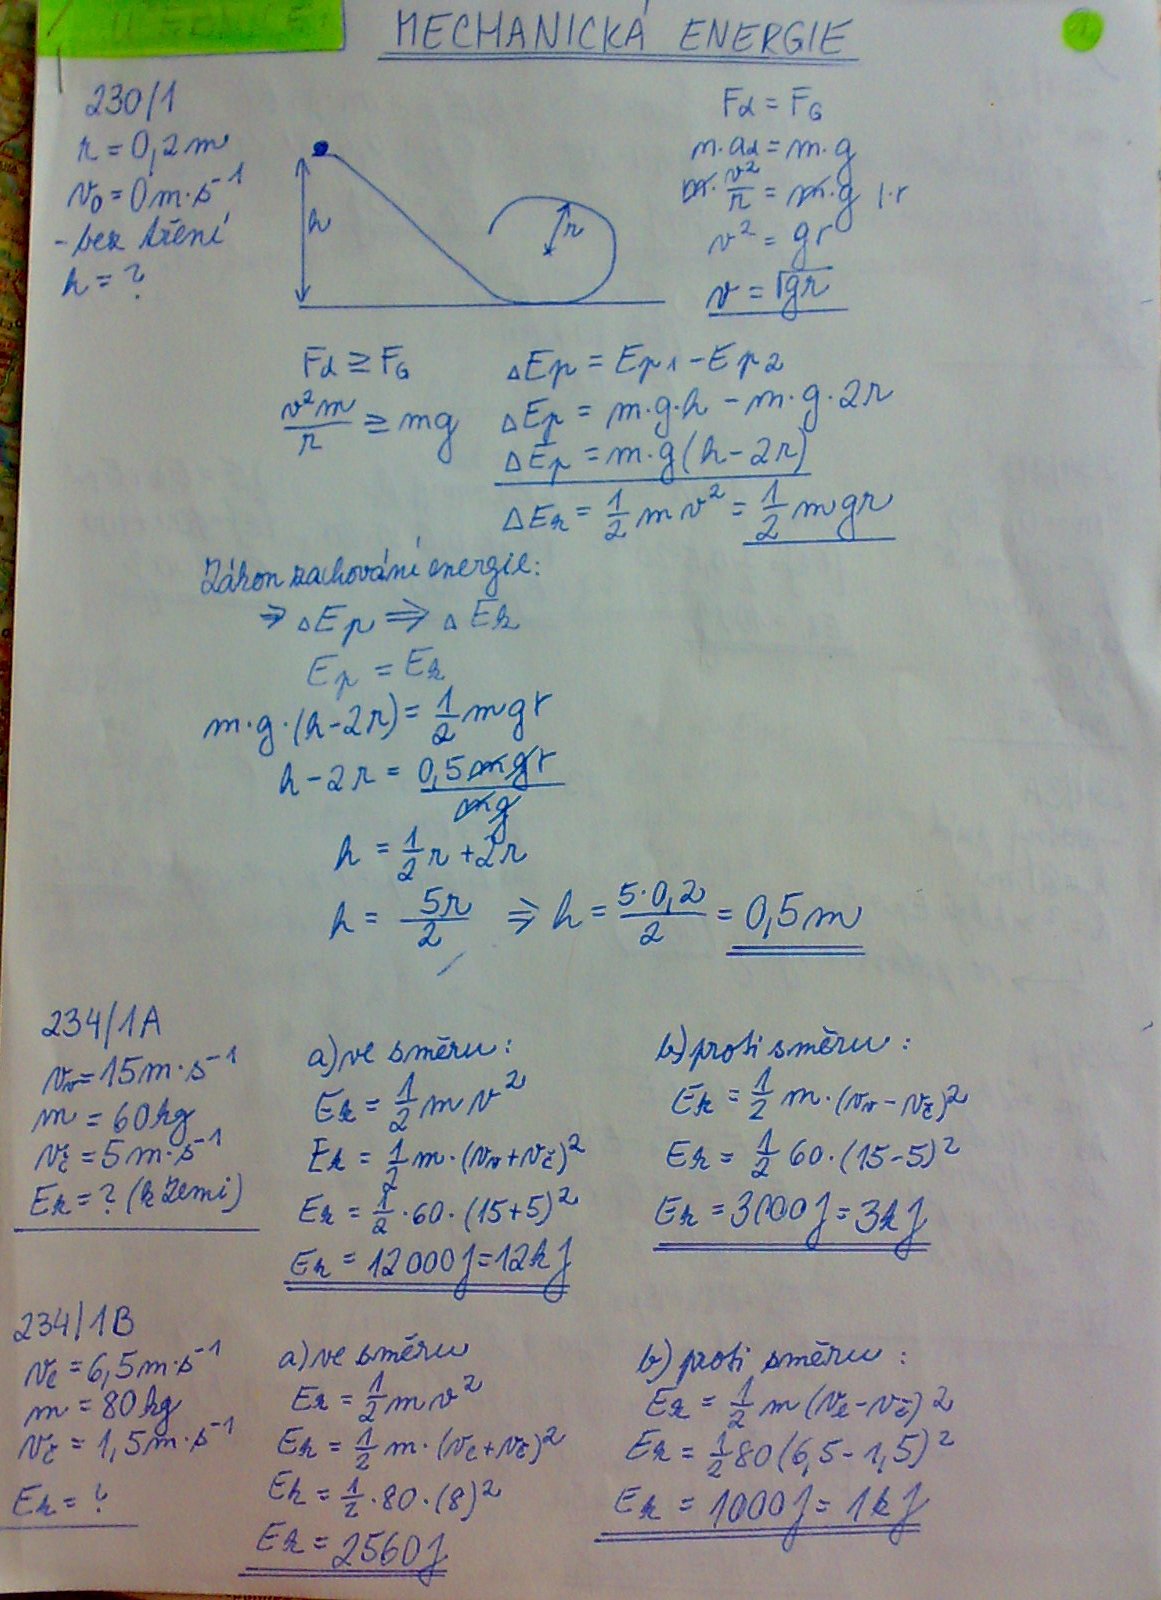 MECHANICKÁ ENERGIE
1
230/1
r = 0,2m
v₀ = 0m·s⁻¹
- bez tření
h = ?
h
r
Fd = FG
m·ad = m·g
m·v²/r = m·g |·r
v² = gr
v = √gr
Fd ≥ FG
v²m/r ≥ mg
ΔEp = Ep1 - Ep2
ΔEp = m·g·h - m·g·2r
ΔEp = m·g(h-2r)
ΔEk = 1/2 mv² = 1/2 mgr
Zákon zachování energie:
⇒ ΔEp ⇒ ΔEk
Ep = Ek
m·g·(h-2r) = 1/2 mgr
h-2r = 0,5mgr/mg
h = 1/2 r + 2r
h = 5r/2 ⇒ h = 5·0,2/2 = 0,5m
234/1A
vv = 15m·s⁻¹
m = 60kg
vč = 5m·s⁻¹
Ek = ? (k Zemi)
a) ve směru:
Ek = 1/2 mv²
Ek = 1/2 m·(vv+vč)²
Ek = 1/2·60·(15+5)²
Ek = 12000J = 12kJ
b) proti směru:
Ek = 1/2 m·(vv-vč)²
Ek = 1/2 60·(15-5)²
Ek = 3000J = 3kJ
234/1B
vl = 6,5m·s⁻¹
m = 80kg
vč = 1,5m·s⁻¹
Ek = ?
a) ve směru
Ek = 1/2 mv²
Ek = 1/2 m·(vl+vč)²
Ek = 1/2·80·(8)²
Ek = 2560J
b) proti směru:
Ek = 1/2 m(vl-vč)2
Ek = 1/2 80(6,5-1,5)²
Ek = 1000J = 1kJ